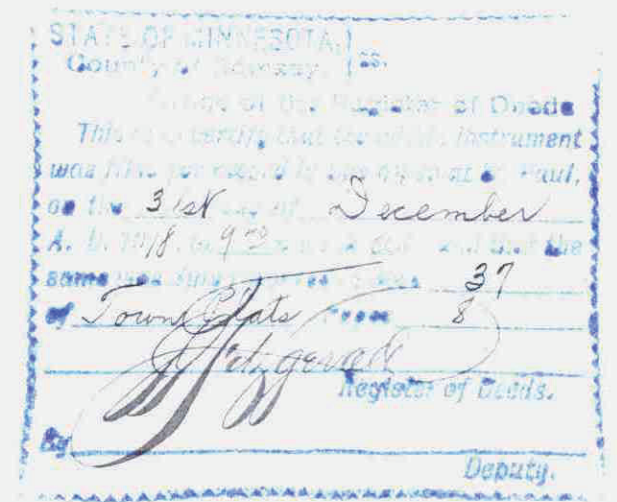 STATE OF MINNESOTA, } ss.
County of Ramsey.
Office of the Register of Deeds
This is to certify that the within instrument
was filed for record in this office at St. Paul,
on the 31st day of December
A. D. 1918, at 9 o'clock and that the
same was 37
of Town Plats Page 8
Fitzgerald
Register of Deeds.
By
Deputy.